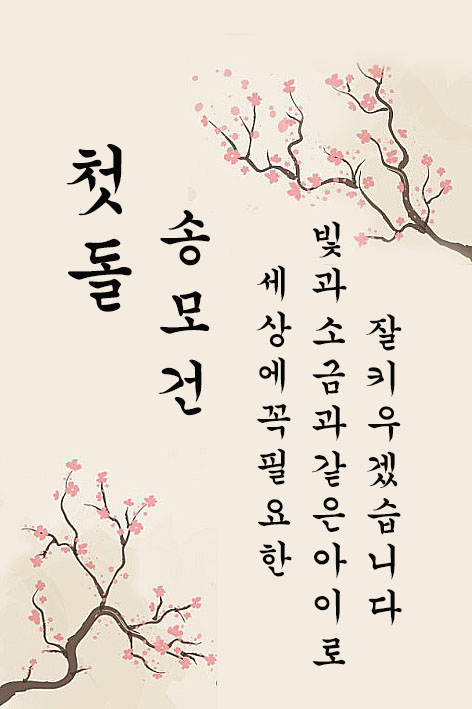 첫돌
송모건
세상에꼭필요한
빛과소금과같은아이로
잘키우겠습니다